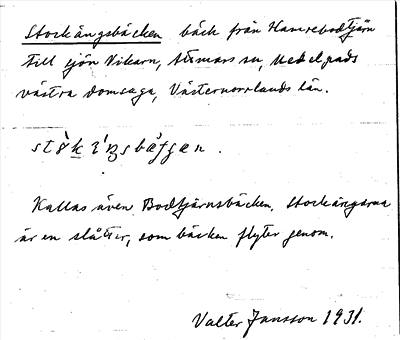 Stockängsbäcken bäck från Hamrebodtjärn
till sjön Vikarn, Attmars sn, Medelpads
västra domsaga, Västernorrlands län.
Kallas även Bodtjärnsbäcken. Stockängarna
är en slåtter, som bäcken flyter genom.
Valter Jansson 1931.